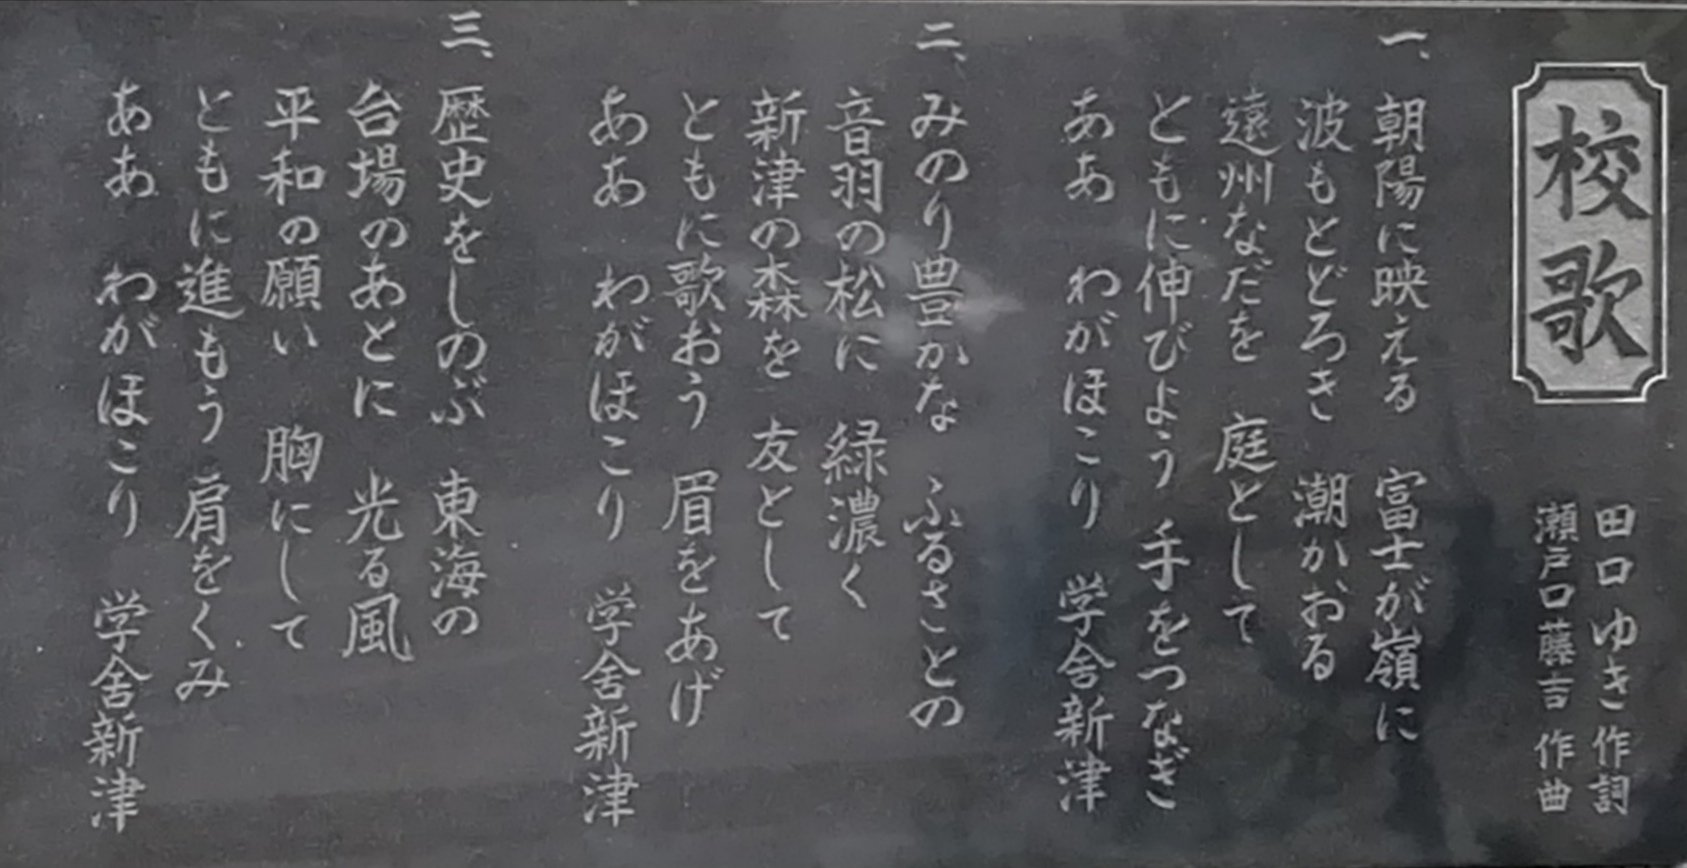 校歌
田口ゆき 作詞
瀬戸口藤吉 作曲
一、朝陽に映える 富士が嶺に
波もとどろき 潮かおる
遠州なだを 庭として
ともに伸びよう 手をつなぎ
ああ わがほこり 学舎新津
二、みのり豊かな ふるさとの
音羽の松に 緑濃く
新津の森を 友として
ともに歌おう 眉をあげ
ああ わがほこり 学舎新津
三、歴史をしのぶ 東海の
台場のあとに 光る風
平和の願い 胸にして
ともに進もう 肩をくみ
ああ わがほこり 学舎新津